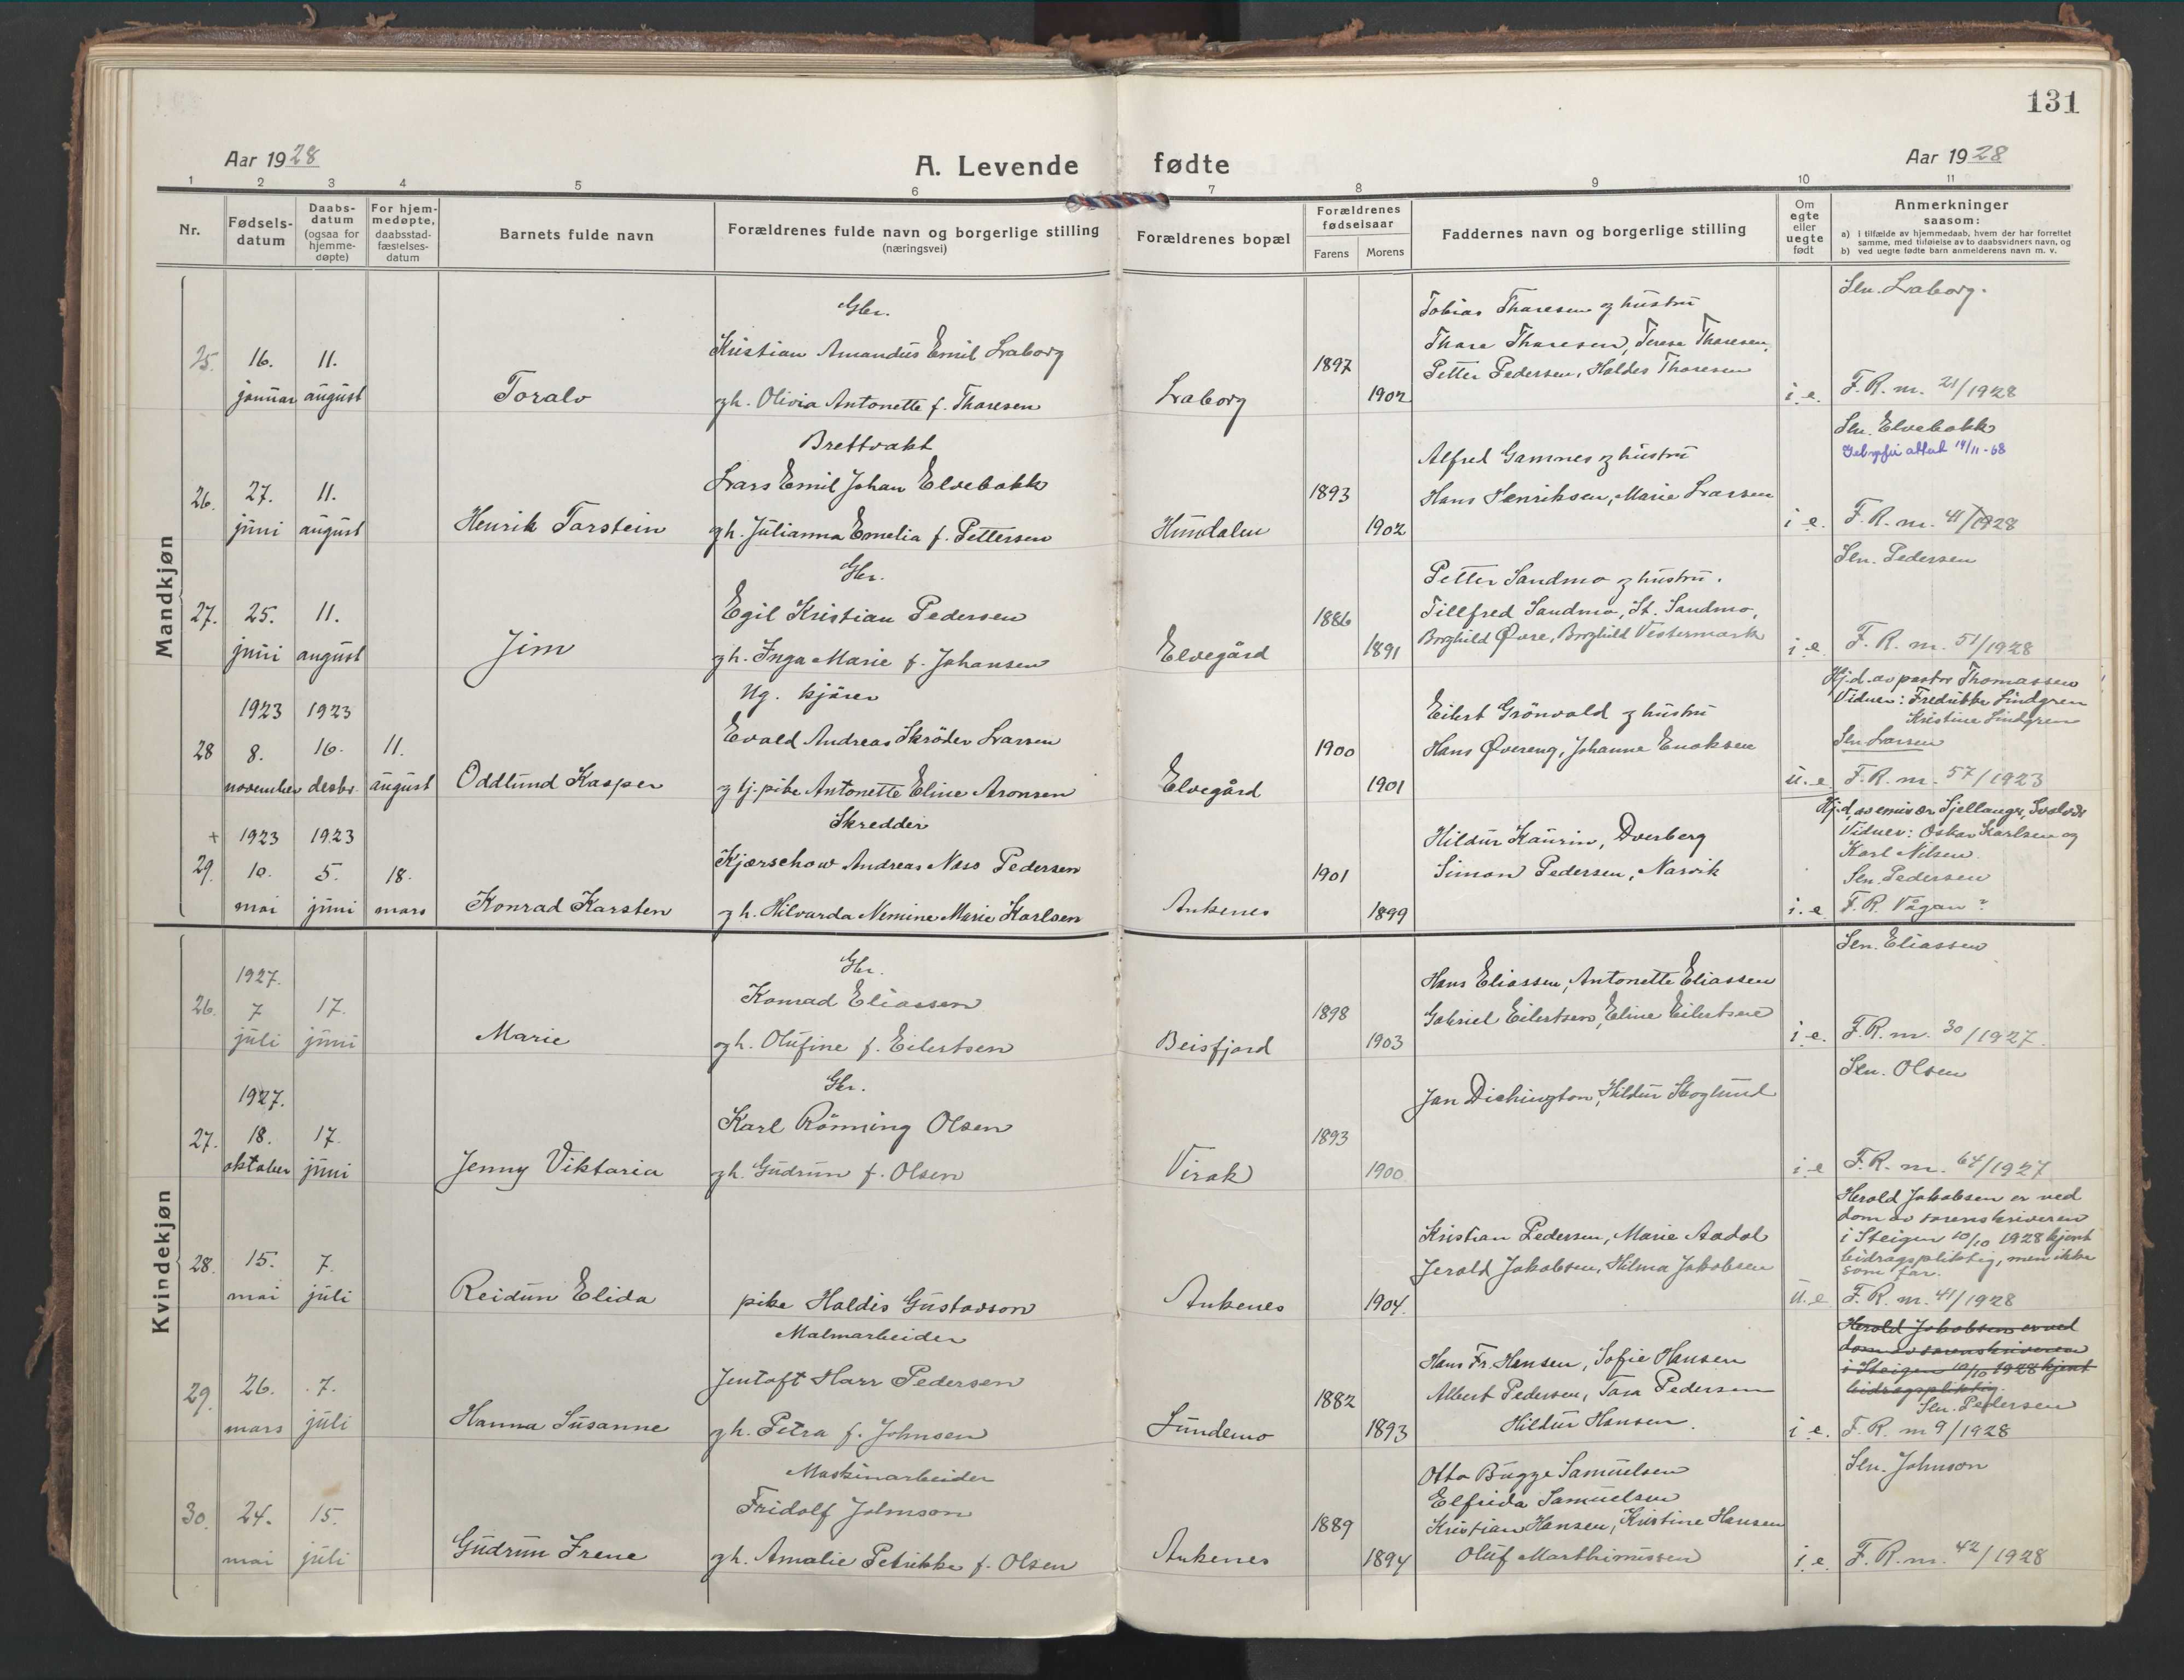 131
Aar 1928
A. Levende fødte
Aar 1928
1 2 3 4 5 6 7 8 9 10 11
Nr.
Fødsels-
datum
Daabs-
datum
(ogsaa for
hjemme-
døpte)
For hjem-
medøpte,
daabsstad-
fæstelses-
datum
Barnets fulde navn
Forældrenes fulde navn og borgerlige stilling
(næringsvei)
Forældrenes bopæl
Forældrenes
fødselsaar
Farens Morens
Faddernes navn og borgerlige stilling
Om
egte
eller
uegte
født
Anmerkninger
saasom:
a) i tilfælde av hjemmedaab, hvem der har forrettet
samme, med tilføielse av to daabsvidners navn, og
b) ved uegte fødte barn anmelderens navn m. v.
Mandkjøn
25.
16.
januar
11.
august
Toralv
Gbr.
Kristian Amandus Emil Laborg
g h. Olivia Antonette f. Tharesen
Laborg
1897
1902
Tobias Tharesen og hustru
Thare Tharesen, Terese Tharesen,
Petter Pedersen, Haldis Tharesen
i. e.
Sln. Laborg.
F. R. nr. 21/1928
26.
27.
juni
11.
august
Henrik Tarstein
Brettvakt
Lars Emil Johan Elvebakk
g h. Julianna Emelia f. Pettersen
Hundalen
1893
1902
Alfred Gamnes og hustru
Hans Henriksen, Marie Larsen
i e.
Sln. Elvebakk
attest 14/11-68
F. R. nr. 41/1928
27.
25.
juni
11.
august
Jim
Gbr.
Egil Kristian Pedersen
g h. Inga Marie f. Johansen
Elvegård
1886
1891
Petter Sandmo og hustru.
Tillfred Sandmo, St. Sandmo,
Borghild Øvre, Borghild Vestermark
i e.
Sln. Pedersen
F. R. nr. 51/1928
28
1923
8.
november
1923
16.
desbr.
11.
august
Oddlund Kasper
Ug. kjører
Evald Andreas Skröder Larsen
og tj. pike Antonette Eline Aronsen
Elvegård
1900
1901
Eilert Grönvold og hustru
Hans Øvereng, Johanne Enoksen
u. e
Hj.d. av pastor Thomassen
Vidner: Fredrikke Lindgren
Kristine Lindgren
Sln Larsen
F. R. nr. 57/1923
+
29.
1923
10.
mai
1923
5.
juni
18.
mars
Konrad Karsten
Skredder
Kjærschow Andreas Nass Pedersen
g h. Hilvarda Nemine Marie Karlsen
Ankenes
1901
1899
Hildur Kaurin, Dverberg
Simon Pedersen, Narvik
i. e
Hj.d. av emissær Sjellanger, Svolvær
Vidner: Oskar Karlsen og
Karl Nilsen.
Sln. Pedersen
F. R. Vågan ?
Kvindekjøn
26.
1927.
7
juli
17.
juni
Marie
Gbr.
Konrad Eliassen
g h. Olufine f. Eilertsen
Beisfjord
1898
1903
Hans Eliassen, Antonette Eliassen
Gabriel Eilertsen, Eline Eilertsen
i. e.
Sln. Eliassen
F. R. nr. 30/1927.
27.
1927.
18.
oktober
17.
juni
Jenny Viktoria
Gbr.
Karl Rönning Olsen
g h. Gudrun f. Olsen
Virak
1893
1900
Jan Dichington, Hildur Skoglund
i e
Sln. Olsen
F. R. nr. 64/1927
28.
15.
mai
7.
juli
Reidun Elida
pike Haldis Gustavson
Ankenes
1904.
Kristian Pedersen, Marie Aadal
Jerold Jakobsen, Hilma Jakobsen
u. e
Herold Jakobsen er ved
dom av sorenskriveren
i Steigen 10/10 1928 kjent
bidragspliktig, men ikke
som far.
F. R. nr. 41/1928
29.
26.
mars
7.
juli
Hanna Susanne
Malmarbeider
Jentoft Harr Pedersen
g h. Petra f. Johnsen
Sundemo
1882
1893
Hans Fr. Hansen, Sofie Hansen
Albert Pedersen, Tara Pedersen
Hildur Hansen.
i e.
Herold Jakobsen er ved
dom av sorenskriveren
i Steigen 10/10 1928 kjent
bidragspliktig.
Sln. Pedersen
F. R. nr 9/1928
30.
24.
mai
15.
juli
Gudrun Irene
Maskinarbeider
Fridolf Johnson
g h. Amalie Petrikke f. Olsen
Ankenes
1889
1894
Otto Bugge Samuelsen
Elfrida Samuelsen
Kristian Hansen, Kristine Hansen
Oluf Marthinussen
i. e.
Sln. Johnson
F. R. nr. 42/1928